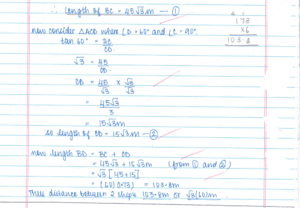 ∴ length of BC = 45√3 m — ①
now consider △ACD where ∠D = 60° and ∠C = 90°.
tan 60° = BC / CD
√3 = 45 / CD
CD = 45/√3 × √3/√3
= 45√3 / 3
= 15√3 m
so length of CD = 15√3 m — ②
now length BD = BC + CD
= 45√3 + 15√3 m (from ① and ②)
= √3 [45+15]
= (60)(1.73) = 103.8m
Thus distance between 2 ships 103.8m or √3(60)m
1.73
×6
103.8